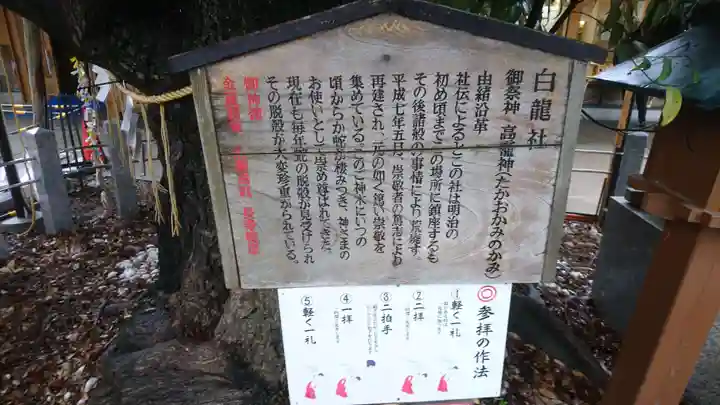 白龍社
御祭神 高龗神(たかおかみのかみ)
由緒沿革
社伝によるとこの社は明治の
初め頃までこの場所に鎮座するも
その後諸般の事情により荒廃す
平成七年五月、崇敬者の篤志により
再建され、元の如く篤い崇敬を
集めている。このご神木にいつの
頃からか蛇が棲みつき、神さまの
お使いとして崇め尊ばれてきた。
現在も毎年蛇の脱殻が見受けられ
その脱殻が大変珍重がられている。
御利益
◎参拝の作法
①軽く一礼
②二拝
③二拍手
④一拝
⑤軽く一礼